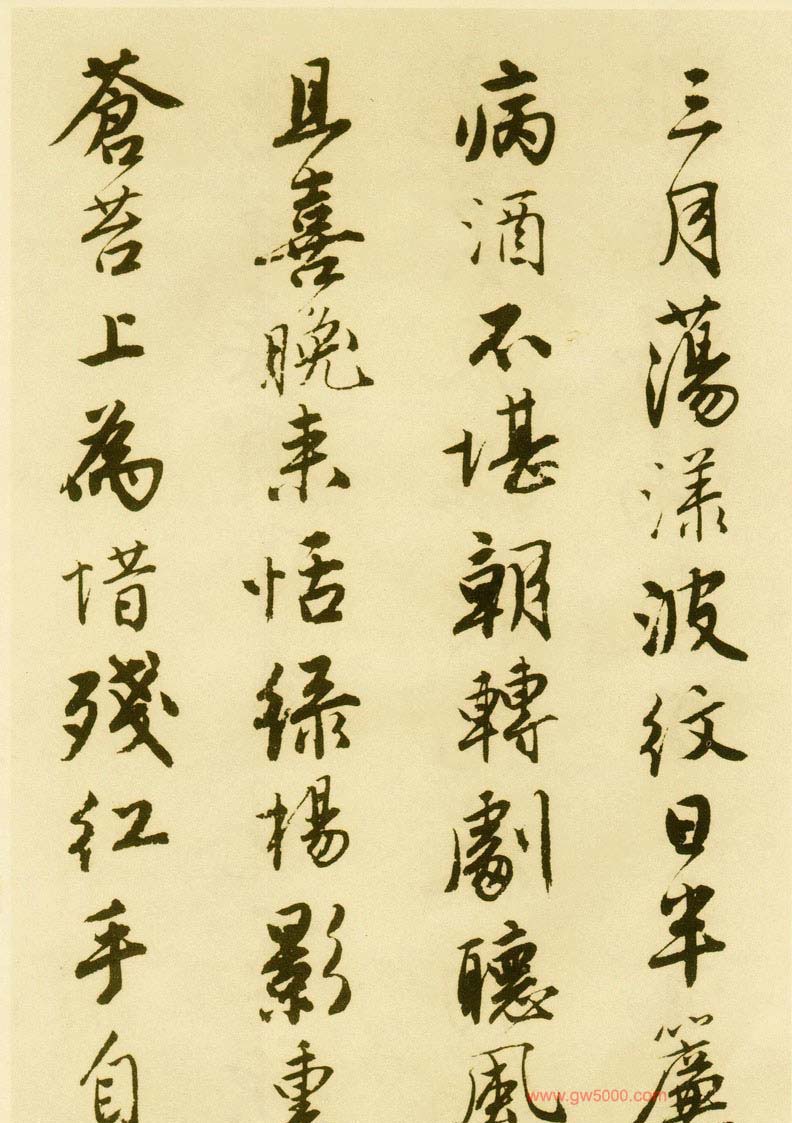 三月蕩漾波紋日半簾
病酒不堪朝轉劇聽風
且喜晚來恬綠楊影重
蒼苔上為惜殘紅手自
www.gw5000.com